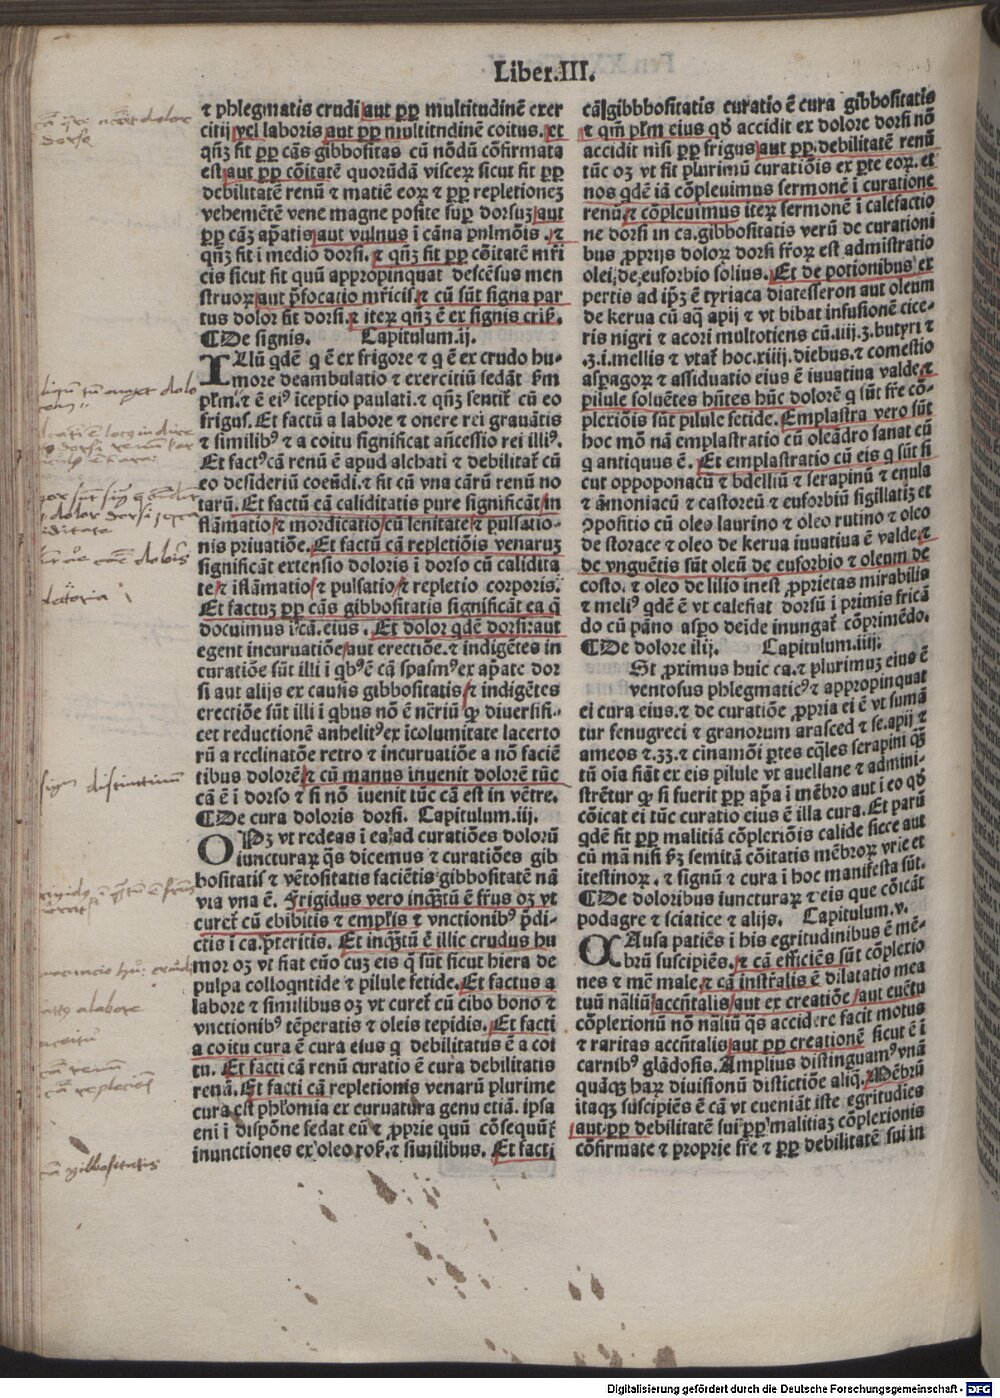 Liber.III.
⁊ phlegmatis crudi aut ꝓp multitudinē exer
citij vel laboris aut ꝓp multitndinē coitus. et
qñꝫ fit ꝓp cās gibbositas cū nōdū cōfirmata
est aut ꝓp cōitatē quorūdā visceꝝ sicut fit ꝓp
debilitatē renū ⁊ matiē eoꝝ ⁊ ꝓp repletionez
vehemētē vene magne posite suꝑ dorsuꝫ aut
ꝓp cāꝫ aꝑatis aut vulnus ī cāna pnlmōis. ⁊
qñꝫ fit ī medio dorsi. ⁊ qñꝫ fit ꝓp cōitatē mr̄i
cis sicut fit quū appropinquat descēsus men
struoꝝ aut p̄focatio mr̄icis. ⁊ cū sūt signa par
tus dolor fit dorsi. ⁊ iteꝝ qñꝫ ē ex signis criẜ.
¶De signis. Capitulum.ij.
Illū qdē q̄ ē ex frigore ⁊ q̄ ē ex crudo hu-
more deambulatio ⁊ exercitiū sedāt ẜm
plm̄. ⁊ ē eiꝰ īceptio paulati. ⁊ qñꝫ sentit̄ cū eo
frigus. Et factū a labore ⁊ onere rei grauātis
⁊ similibꝰ ⁊ a coitu significat añcessio rei illiꝰ.
Et factꝰ cā renū ē apud alchati ⁊ debilitat̄ cū
eo desideriū coeūdi. ⁊ fit cū vna cārū renū no
tarū. Et factū cā caliditatis pure significāt in
flāmatio ⁊ mordicatio cū lenitate ⁊ pulsatio-
nis priuatiōe. Et factū cā repletiōis venaruꝫ
significāt extensio doloris ī dorso cū calidita
te ⁊ īflāmatio ⁊ pulsatio ⁊ repletio corporis.
Et factuꝫ ꝓp cās gibbositatis significāt ea q̄
docuimus ī cā. eius. Et dolor qdē dorsi: aut
egent incuruatiōe aut erectiōe. ⁊ indigētes in
curatiōe sūt illi ī qbꝰ ē cā spasmꝰ ex aꝑate dor
si aut alijs ex causis gibbositatis ⁊ indigētes
erectiōe sūt illi ī qbus nō ē nc̄riū ꝙ diuersifi-
cet reductionē anhelitꝰ ex īcolumitate lacerto
rū a reclinatōe retro ⁊ incuruatiōe a nō faciē
tibus dolorē ⁊ cū manus inuenit dolorē tūc
cā ē ī dorso ⁊ si nō īuenit tūc cā est in vētre.
¶De cura doloris dorsi. Capitulum.iij.
Opꝫ vt redeas ī ea ad curatiōes dolorū
iuncturaꝝ q̄s dicemus ⁊ curatiōes gib
bositatis ⁊ vētositatis faciētis gibbositatē nā
via vna ē. Frigidus vero inq̄tū ē frus oꝫ vt
curet̄ cū ebibitis ⁊ emplīs ⁊ vnctionibꝰ p̄di-
ctis ī ca. p̄teritis. Et inq̄tū ē illic crudus hu
mor oꝫ vt fiat cūo cuꝫ eis q̄ sūt sicut hiera de
pulpa colloqntide ⁊ pilule fetide. Et factus a
labore ⁊ similibus oꝫ vt curet̄ cū cibo bono ⁊
vnctionibꝰ tēperatis ⁊ oleis tepidis. Et facti
a coitu cura ē cura eius q̄ debilitatus ē a coi
tu. Et facti cā renū curatio ē cura debilitatis
renū. Et facti cā repletionis venarū plurime
cura est phlomia ex curuatura genu etiā. ipsa
eni ī dispōne sedat eū ⁊ ꝓprie quū cōsequūt̄
inunctiones ex oleo roẜ. ⁊ similibus. Et facti
cā gibbbositatis curatio ē cura gibbositatis
⁊ qm̄ plm̄ eius qd accidit ex dolore dorsi nō
accidit nisi ꝓp frigus aut ꝓp debilitatē renū
tūc oꝫ vt fit plurimū curatiōis ex ꝑte eoꝝ. et
nos qdē iā cōpleuimus sermonē ī curatione
renū. ⁊ cōpleuimus iteꝝ sermonē ī calefactio
ne dorsi in ca. gibbositatis verū de curationi
bus ꝓprijs dolorꝫ dorsi frōꝝ est admistratio
olei de euforbio solius. Et de potionibus ex
pertis ad ip̄ꝫ ē tyriaca diatesseron aut oleum
de kerua cū aq̄ apij ⁊ vt bibat infusionē cice-
ris nigri ⁊ acori multotiens cū.iiij.ʒ.butyri ⁊
.ʒ.i.mellis ⁊ vtat̄ hoc.xiiij.diebus. ⁊ comestio
aspagoꝝ ⁊ assiduatio eius ē iuuatiua valde. ⁊
pilule soluētes hn̄tes hūc dolorē q̄ sūt fre cō-
plexiōis sūt pilule fetide. Emplastra vero sūt
hoc mō nā emplastratio cū oleādro sanat cū
q̄ antiquus ē. Et emplastratio cū eis q̄ sūt si
cut oppoponacū ⁊ bdelliū ⁊ serapinū ⁊ enula
⁊ āmoniacū ⁊ castoreū ⁊ euforbiū sigillatiꝫ et
ꝯpositio cū oleo laurino ⁊ oleo rutino ⁊ oleo
de storace ⁊ oleo de kerua iuuatiua ē valde. ⁊
de vnguētis sūt oleū de euforbio ⁊ oleum de
costo. ⁊ oleo de lilio inest ꝓprietas mirabilis
⁊ meliꝰ qdē ē vt calefiat dorsū ī primis fricā
do cū pāno aspo deīde inungat̄ cōprimēdo.
¶De dolore ilij. Capitulum.iiij.
St ꝓximus huic ca. ⁊ plurimuꝫ eius ē
ventosus phlegmaticꝰ ⁊ appropinquat
ei cura eius. ⁊ de curatiōe ꝓpria ei ē vt sumā
tur fenugreci ⁊ granorum arasced ⁊ se.apij ⁊
ameos ⁊.ʒʒ. ⁊ cināmōi ꝑtes eq̄les serapini q̄ꝫ
tū oīa fiāt ex eis pilule vt auellane ⁊ admini-
strētur ꝙ si fuerit ꝓp aꝑa ī mēbro aut ī eo qd
cōicat ei tūc curatio eius ē illa cura. Et parū
qdē fit ꝓp malitiā cōplexiōis calide sicce aut
cū mā nisi ẜꝫ semitā cōitatis mēbroꝝ vrie et
itestinoꝝ. ⁊ signū ⁊ cura ī hoc manifesta sūt.
¶De doloribus iuncturaꝝ ⁊ eis que cōicāt
podagre ⁊ sciatice ⁊ alijs. Capitulum.v.
Causa patiēs ī his egritudinibus ē mē-
brū suscipiēs. ⁊ cā efficiēs sūt cōplexio
nes ⁊ mē male. ⁊ cā instr̄alis ē dilatatio mea
tuū nāliū accñtalis aut ex creatiōe aut euētu
cōplexionū nō nāliū q̄s accidere facit motus
⁊ raritas accñtalis aut ꝓp creationē sicut ē ī
carnibꝰ glādosis. Amplius distinguamꝰ vnā
quāqꝫ haꝝ diuisionū distictiōe aliq̄. Mēbrū
itaqꝫ suscipiēs ē cā vt eueniāt iste egritudies
aut ꝓp debilitatē sui ꝓp malitiaꝫ cōplexionis
cōfirmate ⁊ proprie fre ⁊ ꝓp debilitatē sui in
Digitalisierung gefördert durch die Deutsche Forschungsgemeinschaft - DFG